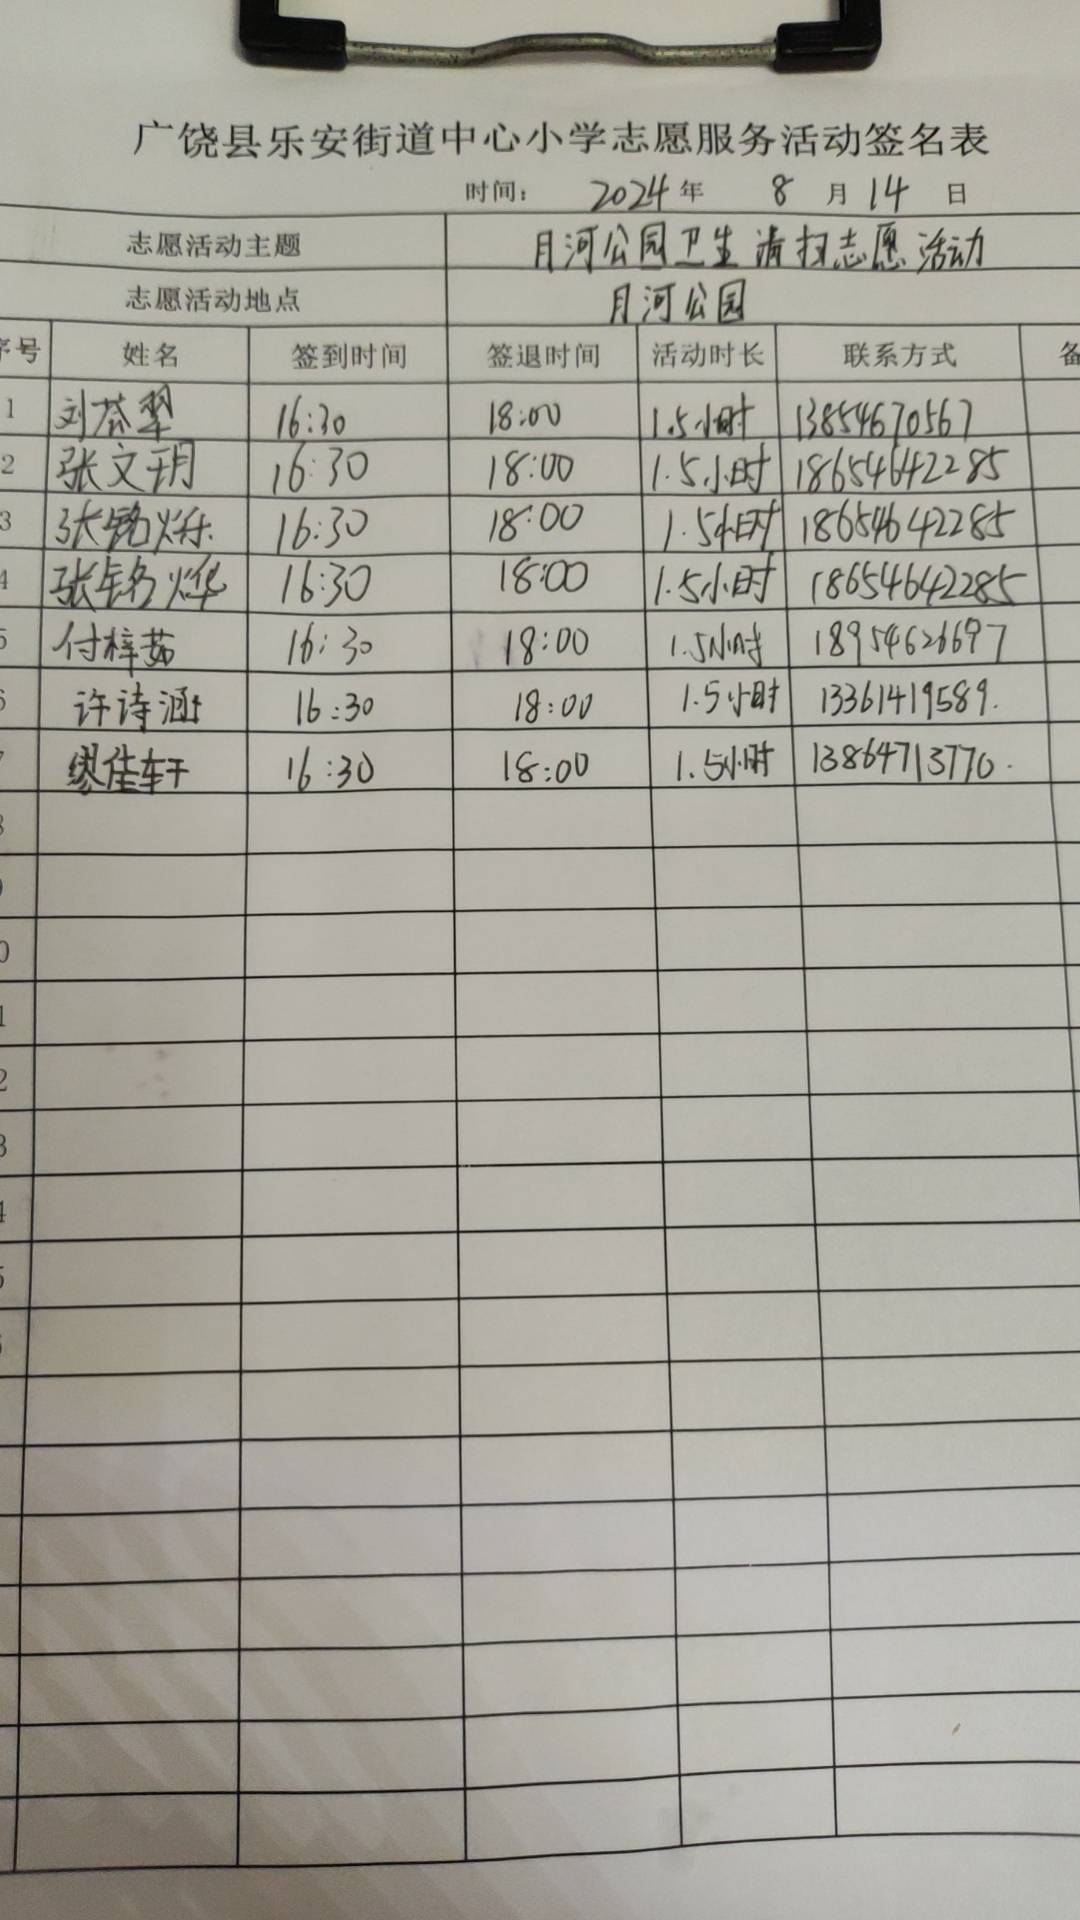 广饶县乐安街道中心小学志愿服务活动签名表
时间： 2024 年 8 月 14 日
志愿活动主题 月河公园卫生清扫志愿活动
志愿活动地点 月河公园
序号 姓名 签到时间 签退时间 活动时长 联系方式 备
1 刘荟翠 16:30 18:00 1.5小时 13854670567
2 张文玥 16:30 18:00 1.5小时 18654642285
3 张铭烁 16:30 18:00 1.5小时 18654642285
4 张铭烨 16:30 18:00 1.5小时 18654642285
5 付梓茹 16:30 18:00 1.5小时 18954626697
6 许诗涵 16:30 18:00 1.5小时 13361419589.
7 缪佳轩 16:30 18:00 1.5小时 13864713770.
8
9
0
1
2
3
4
5